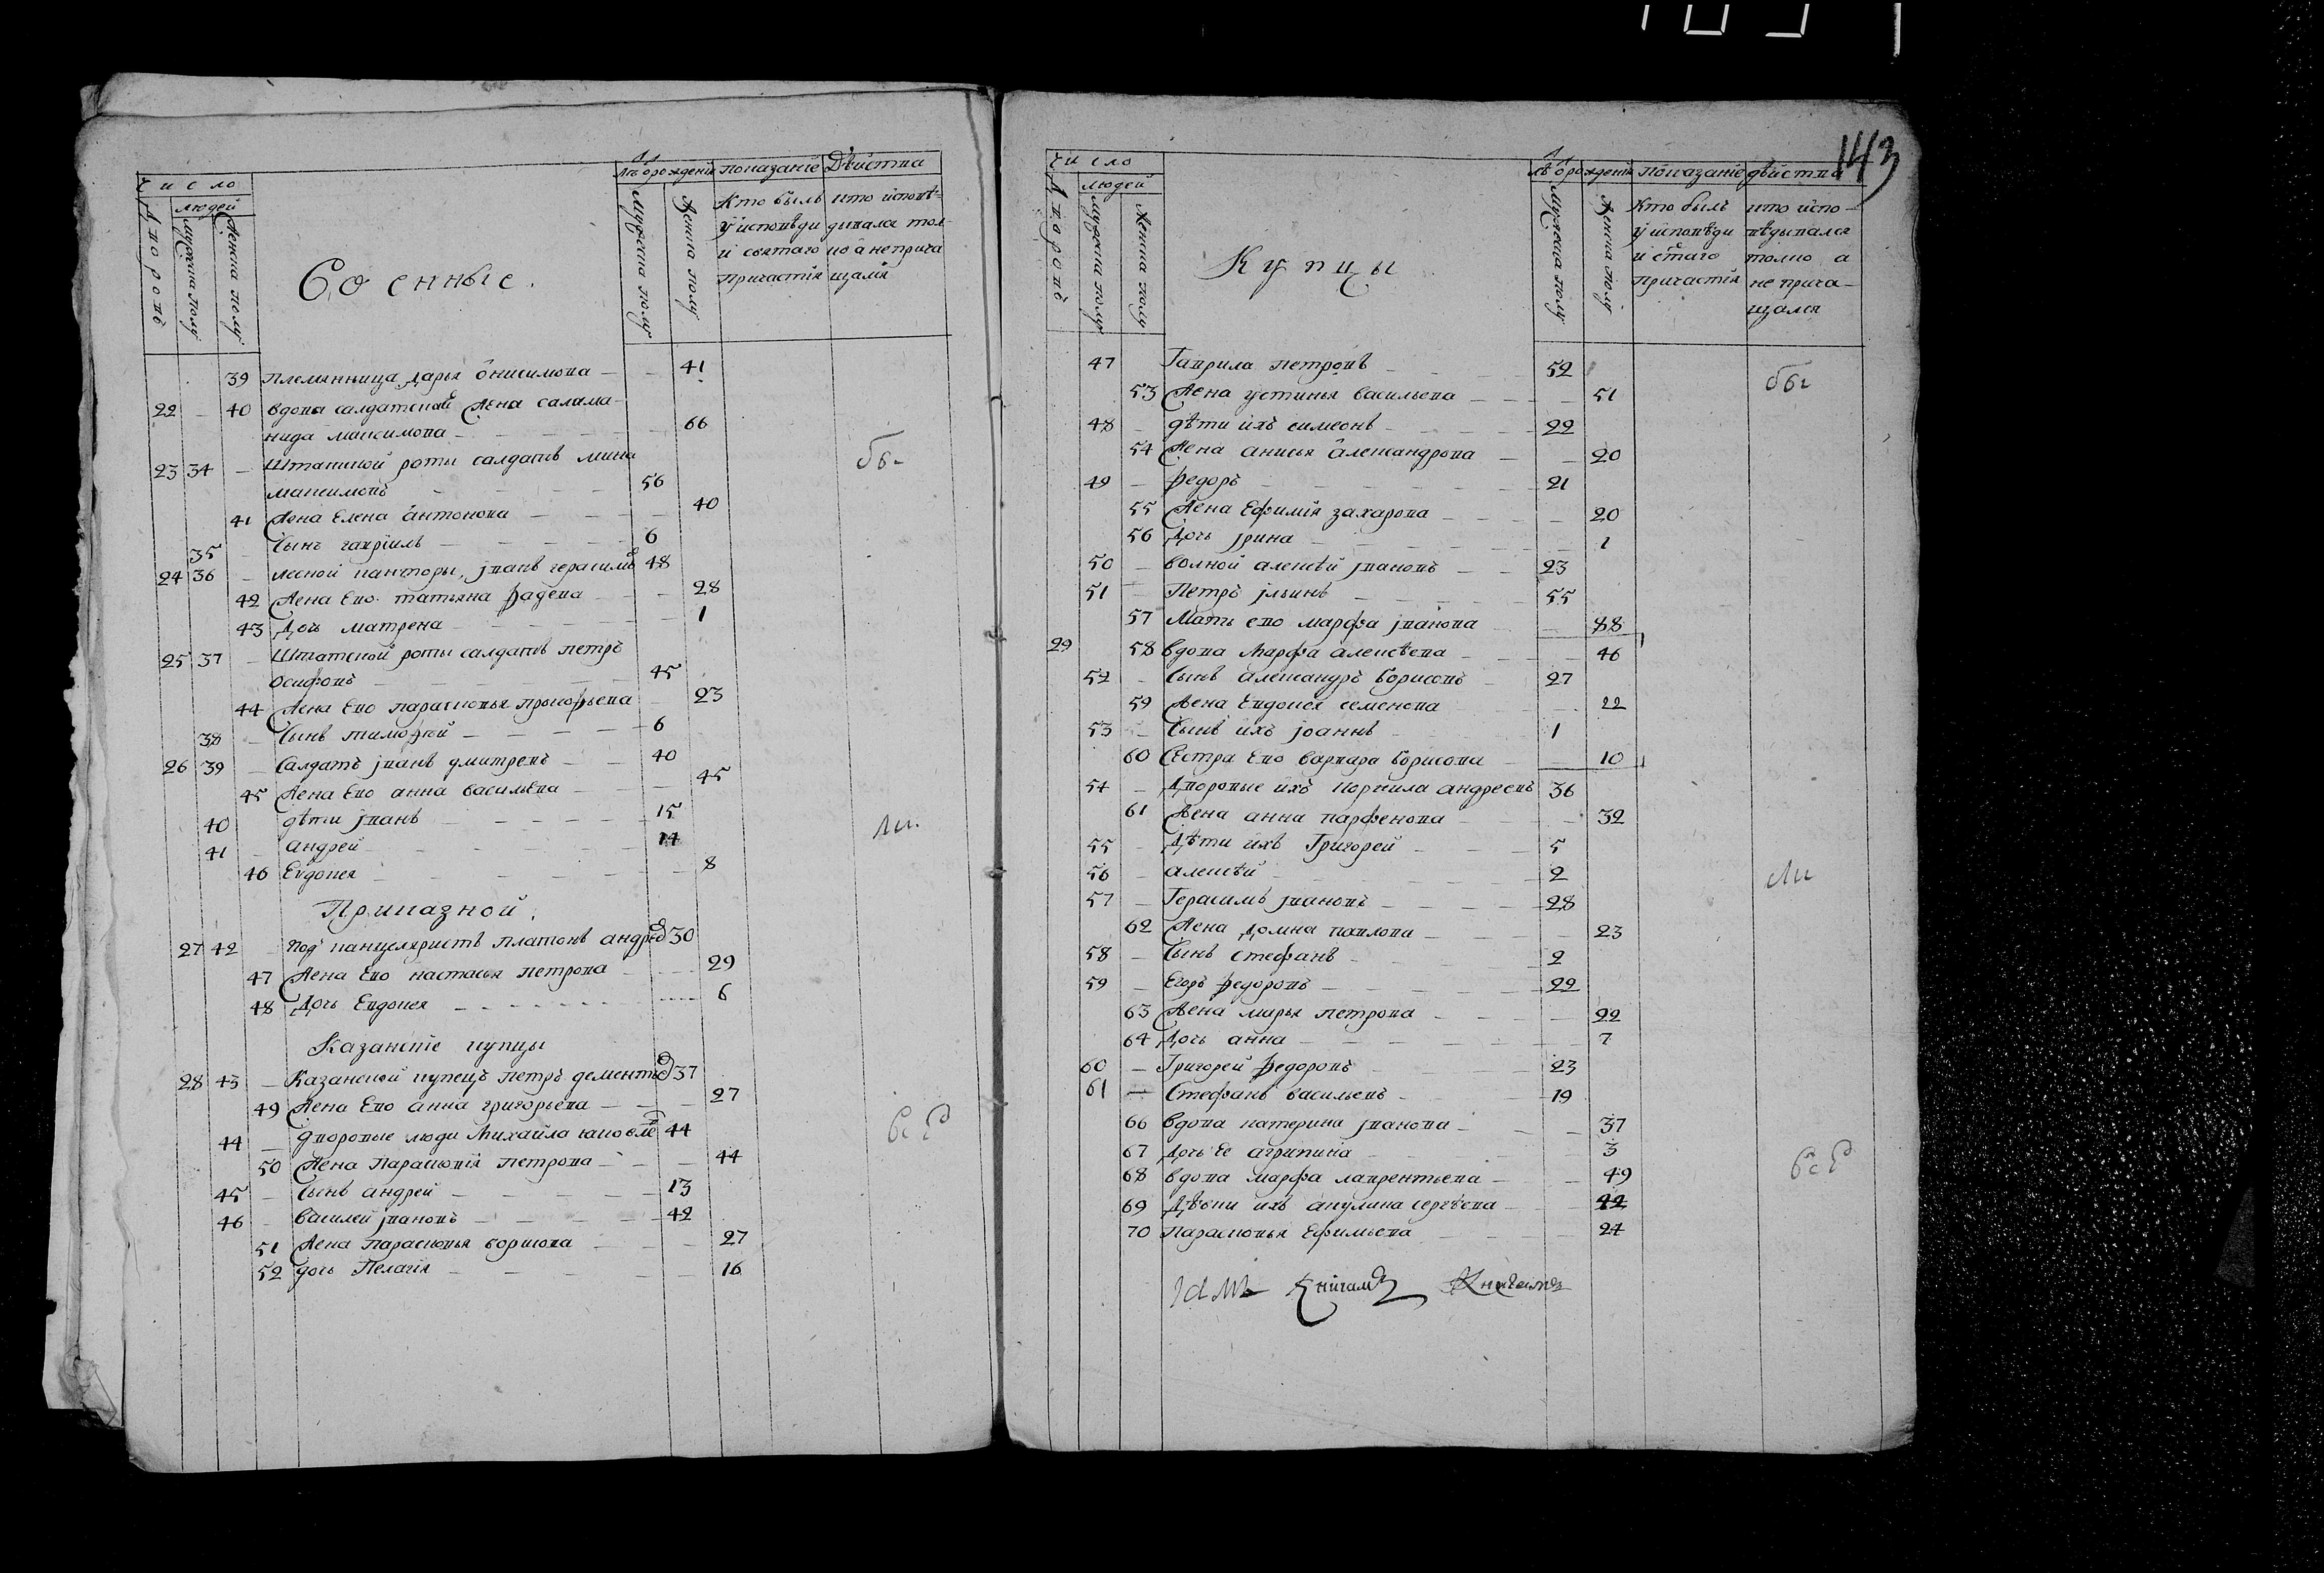 Число
людей
Дворовъ
Мужеска полу
Женска полу
Военные.
Лѣ͏та отъ рожденія
Мужеска полу
Женска полу
показаніе Дѣйства
Кто былъ
у исповѣди
и святаго
Причастія
кто исповѣ-
дывался тол-
ко а неприча
щался
39 племянница дарья онисимова - 41
22 - 40 вдова салдатской жена салама-
нида максимова - 66
23 34 - Штатской роты салдатъ мина
максимовъ - 56
41 жена Елена антонова - 40
35 - Сынъ гавріилъ - 6
24 36 - лесной канторы, іванъ герасимъ 48
42 жена Ево татьяна фадева - 28
43 Дочь матрена - 1
25 37 - Штатской роты салдатъ петръ
осифовъ - 45
44 жена Ево парасковья прокофьева 23
38 - Сынъ тимофей - 6
26 39 - Салдатъ іванъ дмитревъ - 40
45 жена Ево анна васильева - 45
40 дѣти іванъ - 15
41 - андрей - 14
46 Евдокея - 8
Приказной.
27 42 - под канцеляристъ платонъ андрѣе 30
47 жена Ево настасья петрова - 29
48 Дочь Евдокея - 6
Казанскіе купцы
28 43 - Казанской купецъ петръ дементіе 37
49 жена Ево анна григорьева - 27
44 - дворовые люди михайла яковле 44
50 жена Парасковія петрова - 44
45 - Сынъ андрей - 13
46 - василей івановъ - 42
51 жена парасковья борисова - 27
52 дочь Пелагія - 16
143
Число
людей
Дворовъ
Мужеска полу
Женска полу
Купцы
Мужеска полу
Женска полу
показаніе дѣйства
Кто былъ
у исповѣди
и стаго
причастія
кто испо-
вѣдывался
толко а
не прича-
щался
47 Гаврила петровъ - 52
53 жена устинья васильева - 51
48 - дѣти ихъ симеонъ - 22
54 жена анисья александрова - 20
49 - федоръ - 21
55 жена Ефимія захарова - 20
56 Дочь ірина - 1
50 - волной алексѣй івановъ - 23
51 - Петръ ільинъ - 55
57 Мать ево марфа іванова - 88
29 58 вдова марфа алексѣева - 46
52 - Сынъ александръ борисовъ - 27
59 жена Евдокея семенова - 22
53 - Сынъ ихъ іоаннъ - 1
60 Сестра Ево варвара борисова - 10
54 - Дворовые ихъ корнила андреевъ 36
61 жена анна парфенова - 32
55 - Дѣти ихъ Григорей - 5
56 - алексѣй - 2
57 - Герасимъ івановъ - 28
62 жена домна павлова - 23
58 - Сынъ стефанъ - 2
59 - Егоръ федоровъ - 22
63 жена марья петрова - 22
64 Дочь анна - 7
60 - Григорей федоровъ - 23
61 - Стефанъ васильевъ - 19
66 вдова катерина іванова - 37
67 Дочь Ее агрипина - 3
68 вдова марфа лаврентьева - 49
69 Дѣвки ихъ акулина сергѣева - 42
70 Парасковья Ефимьева - 24